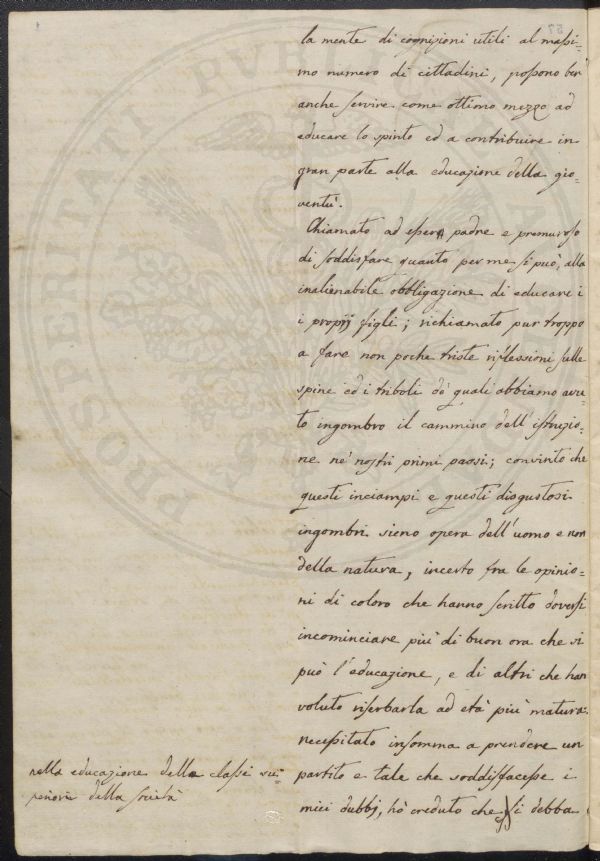 la mente di cognizioni utili al massi=
mo numero di cittadini, possono ben
anche servire come ottimo mezzo ad
educare lo spirito ed a contribuire in
gran parte alla educazione della gio=
ventù.
Chiamato ad esser padre e premuroso
di soddisfare quanto per me si può, alla
inalienabile obbligazione di educare i
i proprj figli; richiamato pur troppo
a fare non poche triste riflessioni sulle
spine ed i triboli de' quali abbiamo avu=
to ingombro il cammino dell'istruzio=
ne ne' nostri primi passi; convinto che
questi inciampi e questi disgustosi
ingombri sieno opera dell'uomo e non
della natura, incerto fra le opinio=
ni di coloro che hanno scritto doversi
incominciare più di buon ora che si
può l'educazione, e di altri che han
voluto riserbarla ad età più matura.
necessitato insomma a prendere un
partito e tale che soddisfacesse i
miei dubbj, hò creduto che si debba
nella educazione delle classi su=
periori della società
PROSPERITATI PVBLICAE